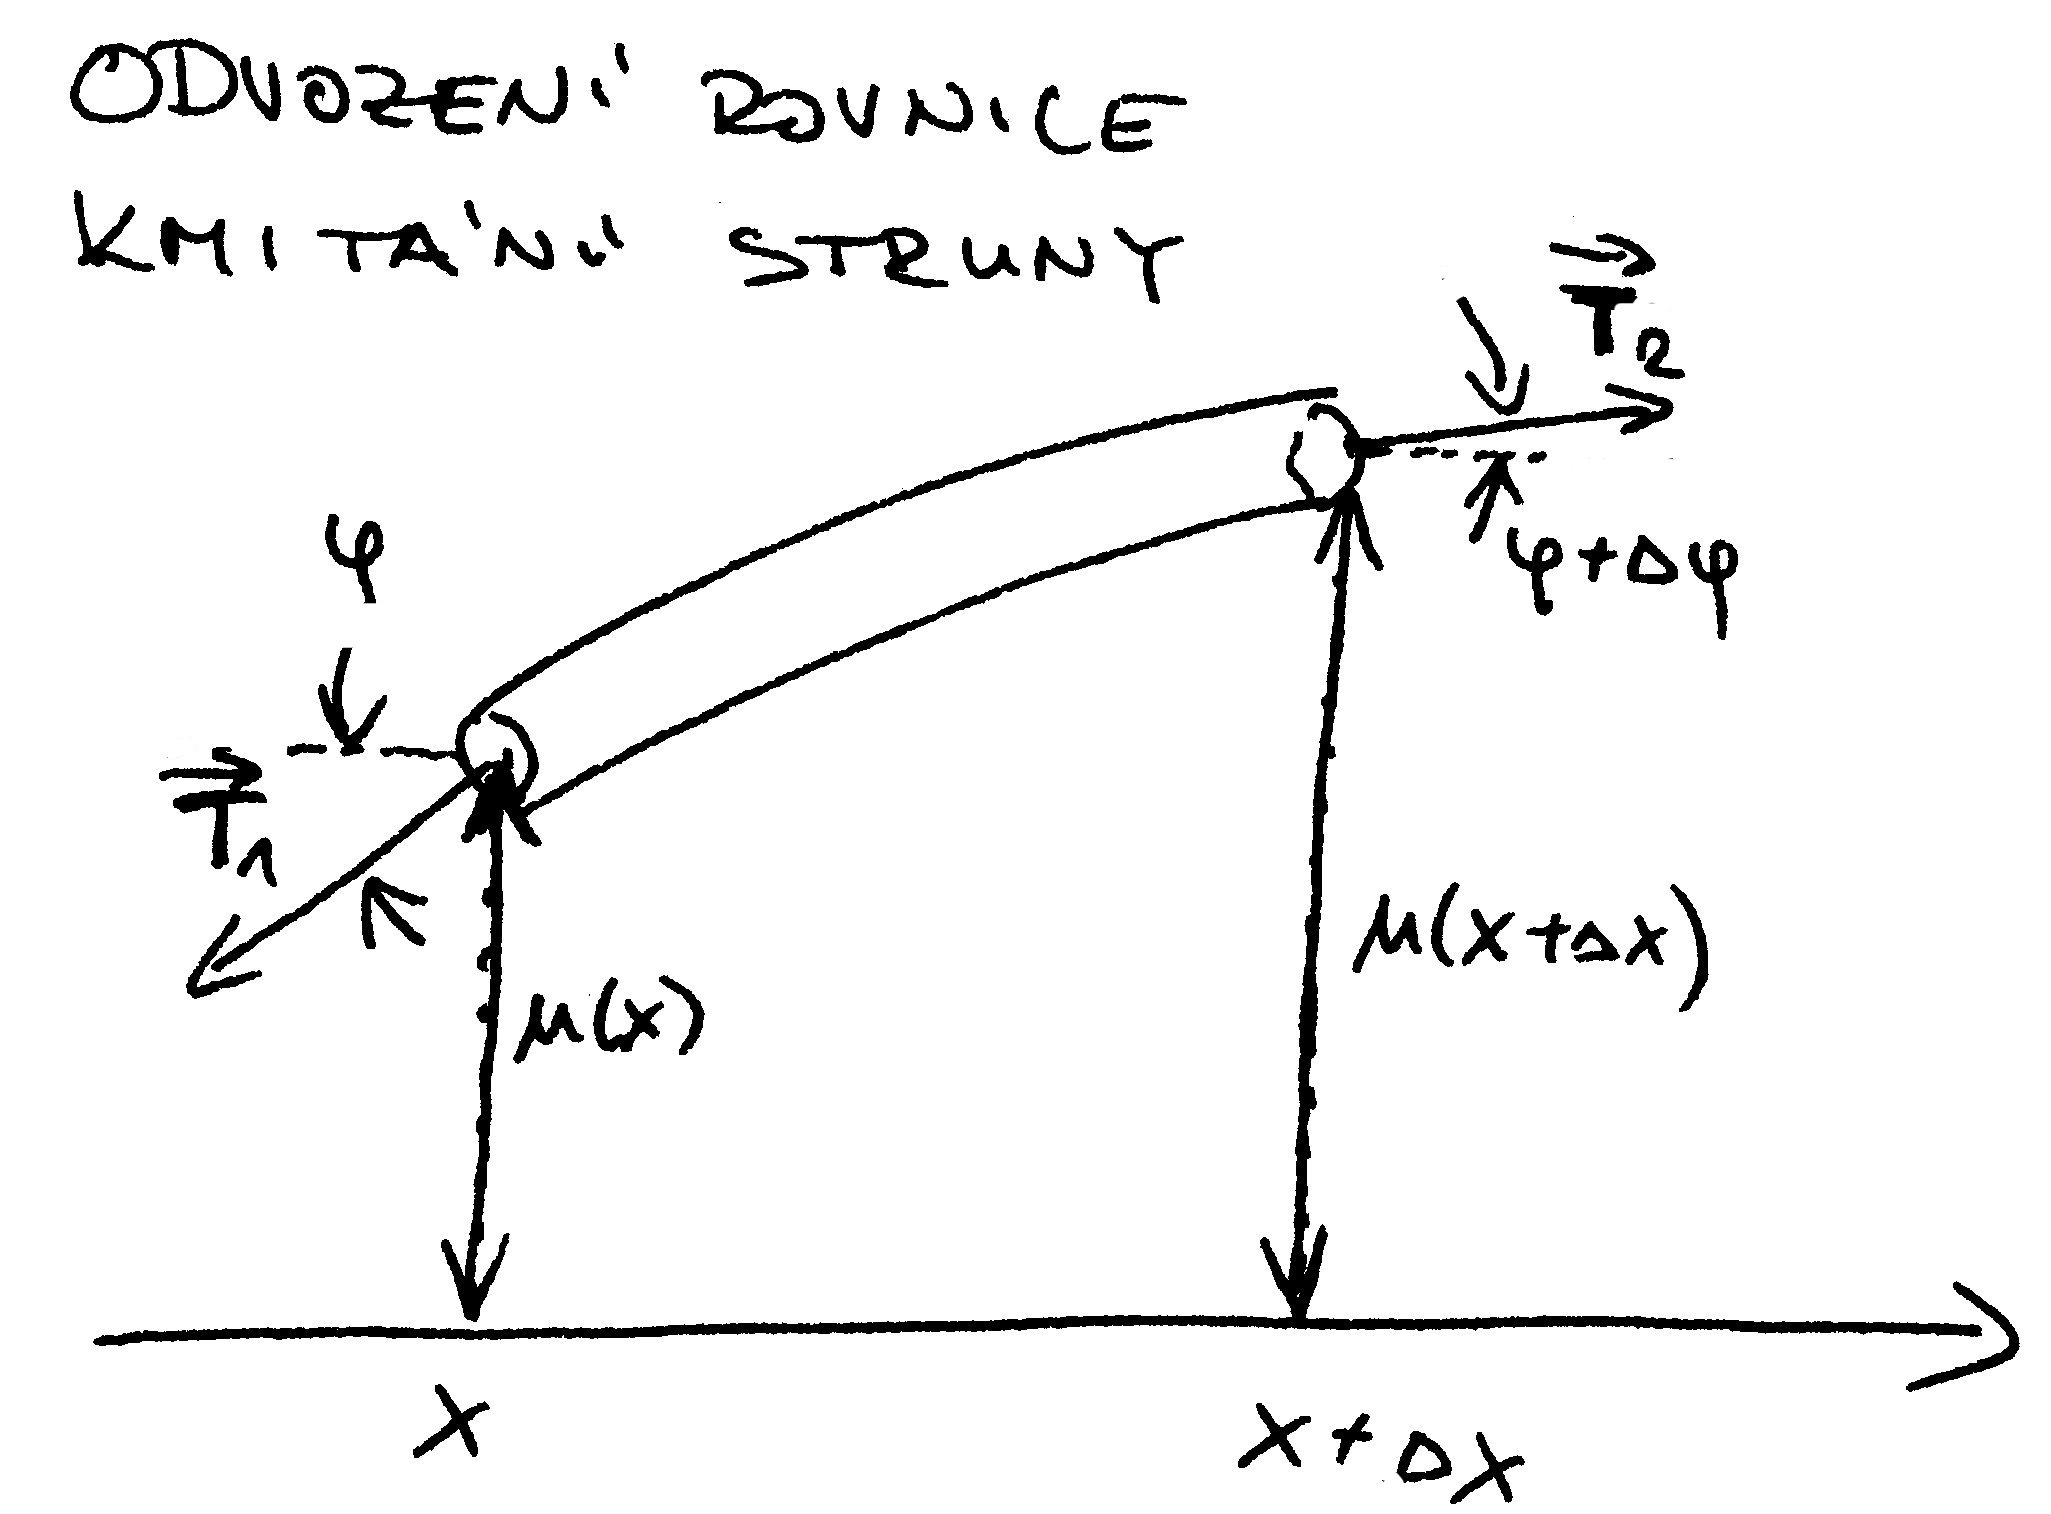 ODVOZENÍ ROVNICE
KMITÁNÍ STRUNY
T⃗₂
φ
φ+Δφ
T⃗₁
μ(x)
μ(x+Δx)
x
x+Δx